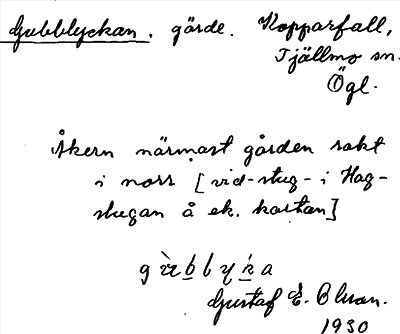 Gubblyckan. gärde. Kopparfall,
Tjällmo sn.
Ögl.
Åkern närmast gården rakt
i norr [vid -stug- i Hag-
stugan å ek. kartan]
Gustaf E.
1930